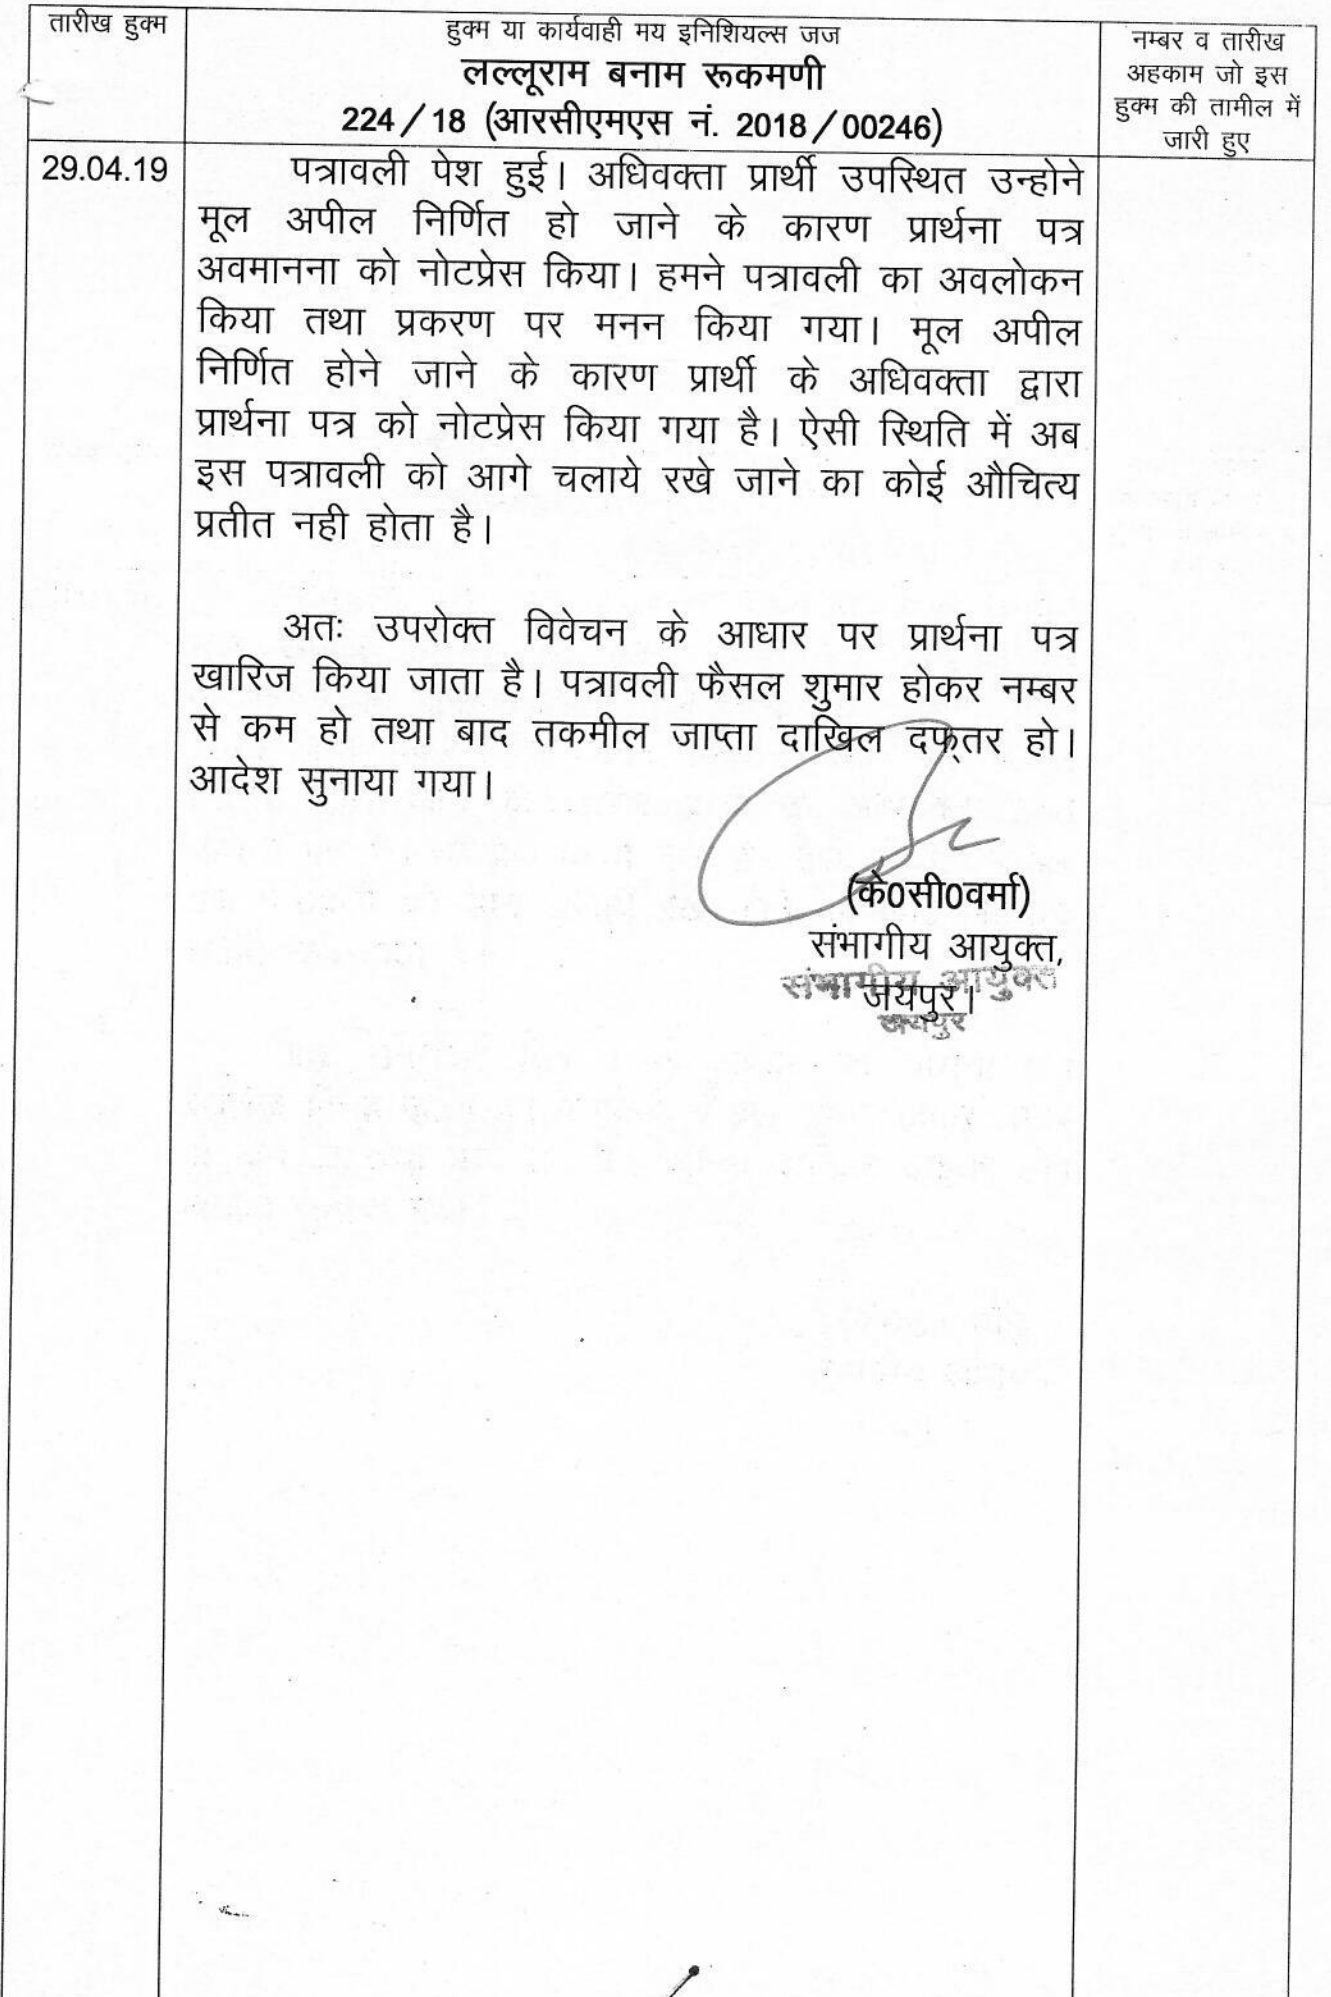 तारीख हुक्म
हुक्म या कार्यवाही मय इनिशियल्स जज
लल्लूराम बनाम रूकमणी
224/18 (आरसीएमएस नं. 2018/00246)
नम्बर व तारीख
अहकाम जो इस
हुक्म की तामील में
जारी हुए
29.04.19
पत्रावली पेश हुई। अधिवक्ता प्रार्थी उपस्थित उन्होने
मूल अपील निर्णित हो जाने के कारण प्रार्थना पत्र
अवमानना को नोटप्रेस किया। हमने पत्रावली का अवलोकन
किया तथा प्रकरण पर मनन किया गया। मूल अपील
निर्णित होने जाने के कारण प्रार्थी के अधिवक्ता द्वारा
प्रार्थना पत्र को नोटप्रेस किया गया है। ऐसी स्थिति में अब
इस पत्रावली को आगे चलाये रखे जाने का कोई औचित्य
प्रतीत नही होता है।
अतः उपरोक्त विवेचन के आधार पर प्रार्थना पत्र
खारिज किया जाता है। पत्रावली फैसल शुमार होकर नम्बर
से कम हो तथा बाद तकमील जाप्ता दाखिल दफ्तर हो।
आदेश सुनाया गया।
(के0सी0वर्मा)
संभागीय आयुक्त,
संभागीय आयुक्त
जयपुर।
जयपुर